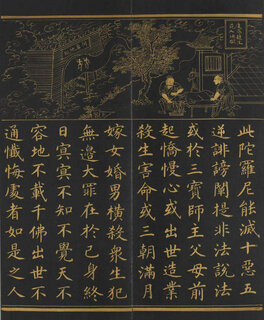 此陁羅尼能滅十惡五
逆誹謗闡提非法說法
或於三寶師主父母前
起憍慢心或出世造業
殺生害命或三朝滿月
嫁女婚男橫殺衆生犯
無邊大罪在於己身終
日冥冥不知不覺天不
容地不載千佛出世不
通懺悔處者如是之人